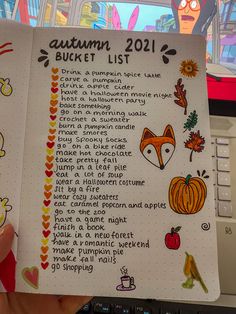 autumn 2021
BUCKET LIST
Drink a pumpkin spice latte
carve a pumpkin
drink apple cider
have a halloween movie night
host a halloween party
bake something
go on a morning walk
crochet a sweater
burn a pumpkin candle
make smores
buy spooky socks
go on a bike ride
make hot chocolate
take pretty fall
jump in a leaf pile
eat a lot of soup
wear a Halloween costume
sit by a fire
wear cozy sweaters
eat caramel popcorn and apples
go to the zoo
have a game night
finish a book
walk in a new forest
have a romantic weekend
make pumpkin pie
make fall nails
go shopping